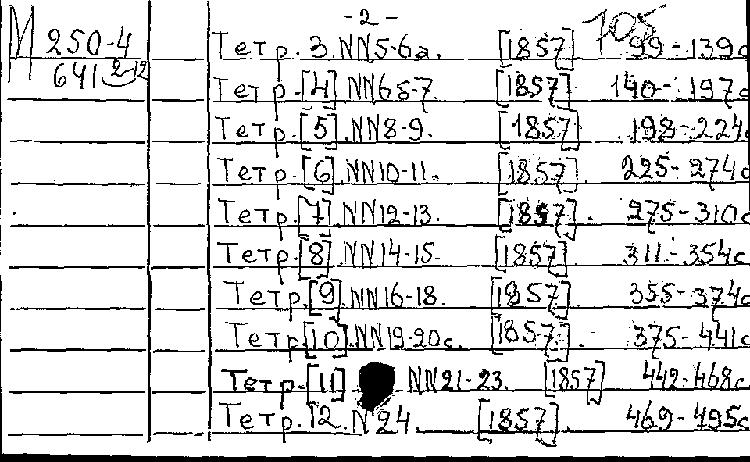 -2-
705
М 250-4
6412-12
Тетр. 3. NN5-6а. [1857] 99-139с
Тетр. [4] NN6б-7 [1857] 140-197с
Тетр. [5]. NN8-9. [1857] 198-224с
Тетр. [6] NN10-11. [1857] 225-274с
Тетр. [7]. NN12-13. [1857]. 275-310с
Тетр. [8] NN14-15. [1857] 311-354с
Тетр. [9]. NN16-18. [1857]. 355-374с
Тетр. [10]. NN19-20с. [1857]. 375-441с
Тетр. [11] NN21-23. [1857] 442-468с
Тетр. 12. N24. [1857] 469-495с